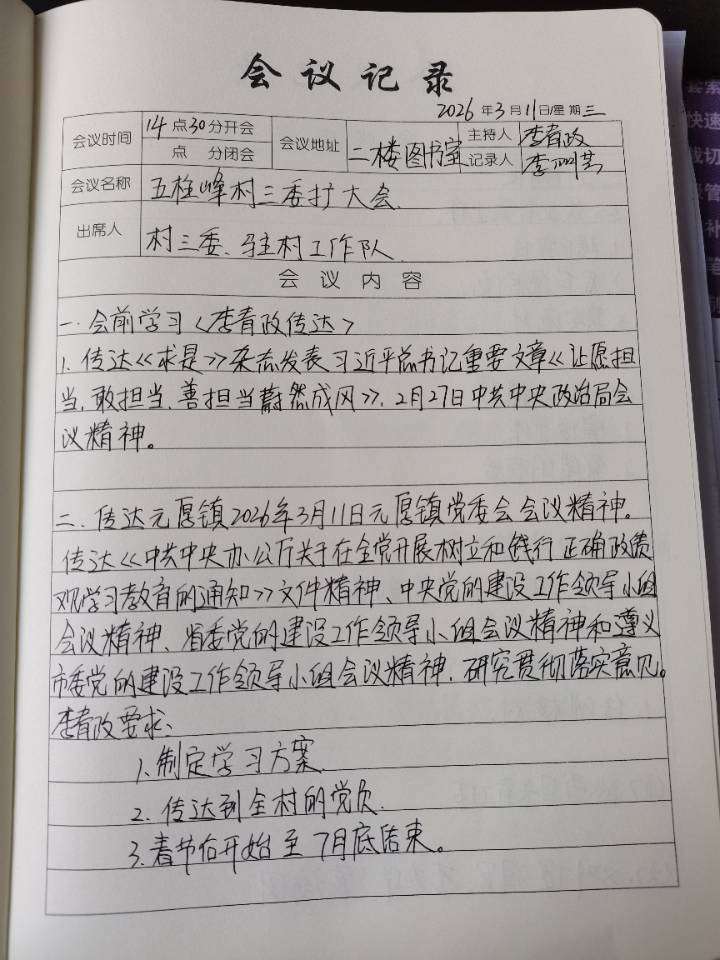 会议记录
2026年3月11日/星期三
会议时间 14点30分开会 会议地址 二楼图书室 主持人 李春政
点 分闭会 记录人
会议名称 五桂峰村三委扩大会.
出席人 村三委、驻村工作队.
会议内容
一、会前学习<李春政传达>
1. 传达《求是》杂志发表习近平总书记重要文章《让愿担
当、敢担当、善担当蔚然成风》,2月27日中共中央政治局会
议精神。
二、传达元厚镇2026年3月11日元厚镇党委会会议精神。
传达《中共中央办公厅关于在全党开展树立和践行正确政绩
观学习教育的通知》文件精神、中央党的建设工作领导小组
会议精神、省委党的建设工作领导小组会议精神和遵义
市委党的建设工作领导小组会议精神,研究贯彻落实意见。
李春政要求:
1. 制定学习方案.
2. 传达到全村的党员.
3. 春节后开始至7月底结束。